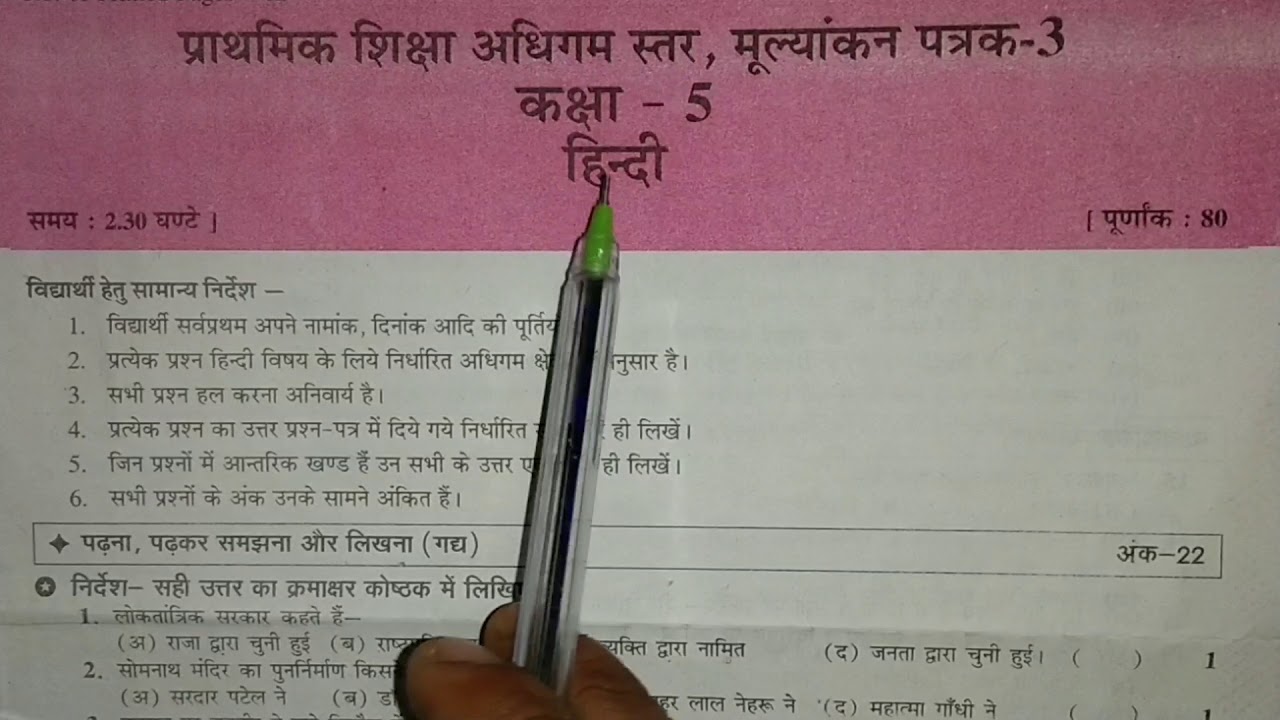 प्राथमिक शिक्षा अधिगम स्तर, मूल्यांकन पत्रक-3
कक्षा - 5
हिन्दी
समय : 2.30 घण्टे ] [ पूर्णांक : 80
विद्यार्थी हेतु सामान्य निर्देश –
1. विद्यार्थी सर्वप्रथम अपने नामांक, दिनांक आदि की
2. प्रत्येक प्रश्न हिन्दी विषय के लिये निर्धारित अधिगम है।
3. सभी प्रश्न हल करना अनिवार्य है।
4. प्रत्येक प्रश्न का उत्तर प्रश्न-पत्र में दिये गये निर्धारित ही लिखें।
5. जिन प्रश्नों में आन्तरिक खण्ड हैं उन सभी के उत्तर ही लिखें।
6. सभी प्रश्नों के अंक उनके सामने अंकित हैं।
पढ़ना, पढ़कर समझना और लिखना (गद्य) अंक–22
निर्देश– सही उत्तर का क्रमाक्षर कोष्ठक में
1. लोकतांत्रिक सरकार कहते हैं–
(अ) राजा द्वारा चुनी हुई (ब) द्वारा नामित (द) जनता द्वारा चुनी हुई। ( ) 1
2. सोमनाथ मंदिर का पुनर्निर्माण
(अ) सरदार पटेल ने (ब) लाल नेहरू ने (द) महात्मा गाँधी ने ( ) 1